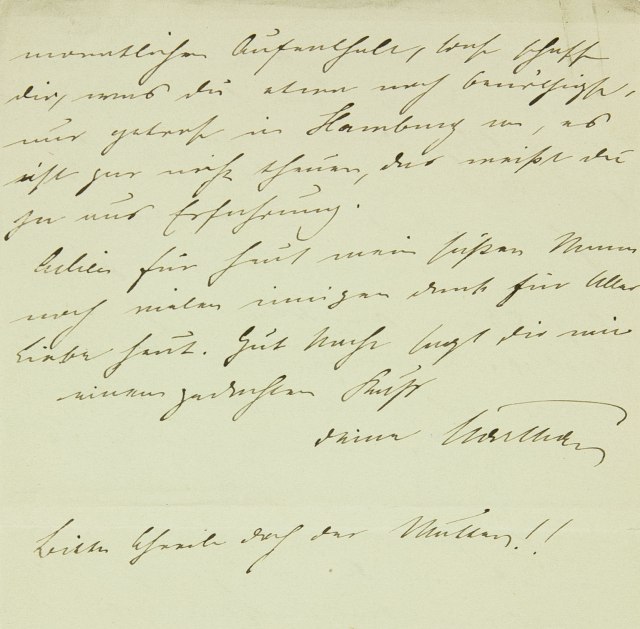 monatlichen Aufenthalt, schaffe
dir, was du etwa noch benöthigst,
nur getrost in Hamburg an, es
ist gar nicht theuer, das weißt du
ja aus Erfahrung.
Adieu für heut mein süßer Mann
noch vielen innigen Dank für alle
Liebe heut. Gut Nacht sagt dir mit
einem gedachten Kuß
deine
Bitte schreib doch der Mutter!!